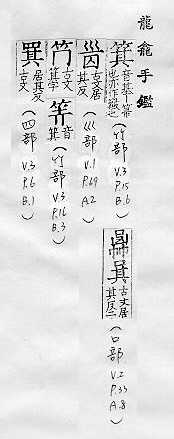 龍龕手鑑
箕 音基
(竹部 V.3 P.15 B.6)
古文居其反
(巛部 V.1 P.69 A.2)
古文箕字 音箕
(竹部 V.3 P.16 B.3)
居其反古文
(四部 V.3 P.6 B.1)
古文居其反二
(口部 V.2 P.33 A.8)